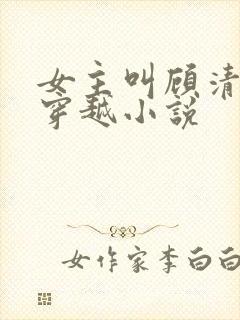 女主叫顾清
穿越小说
女作家李白白